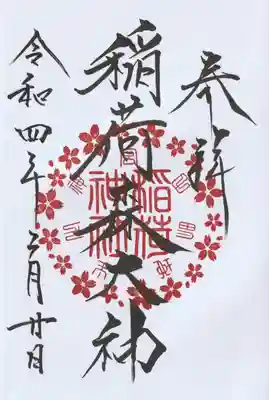 奉拝
稲荷森大神
令和四年三月廿日
稲荷
神社